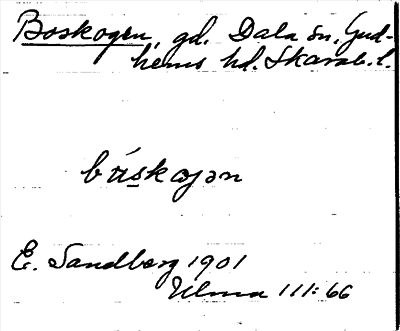 Boskogen, gd. Dala sn, Gud-
hems hd. Skarab. l.
búskogən
E. Sandberg 1901
Ulma 111:66